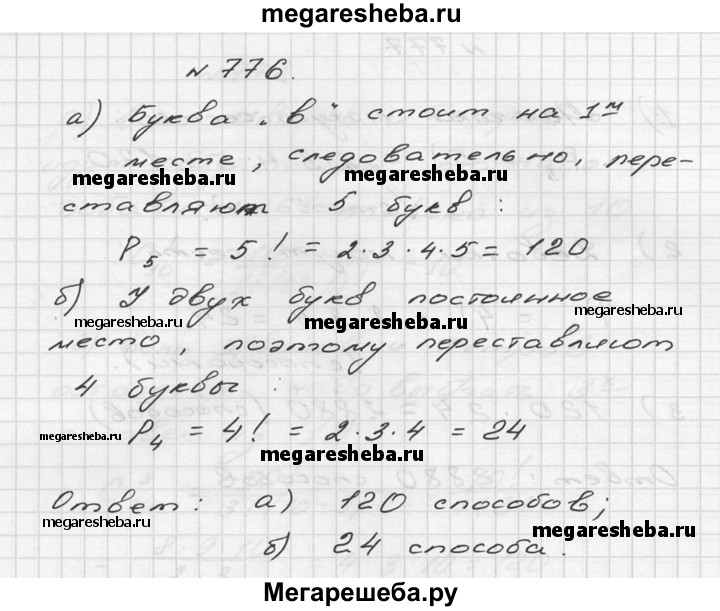 megaresheba.ru
№ 776.
а) Буква „в“ стоит на 1м
месте, следовательно, пере-
megaresheba.ru megaresheba.ru
ставляют 5 букв:
P5 = 5! = 2·3·4·5 = 120
б) У двух букв постоянное
megaresheba.ru megaresheba.ru megaresheba.ru
место, поэтому переставляют
4 буквы:
megaresheba.ru P4 = 4! = 2·3·4 = 24
megaresheba.ru
Ответ: а) 120 способов;
megaresheba.ru megaresheba.ru
б) 24 способа.
Мегарешеба.ру